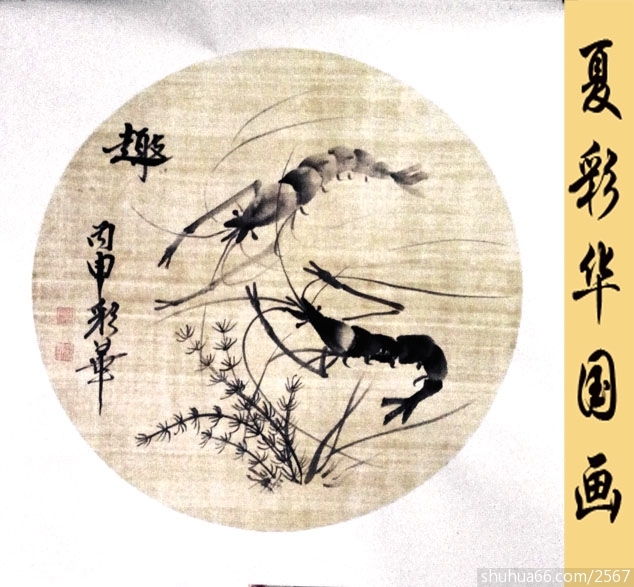 趣
丙申彩華
夏彩华国画
shuhua66.com/2567